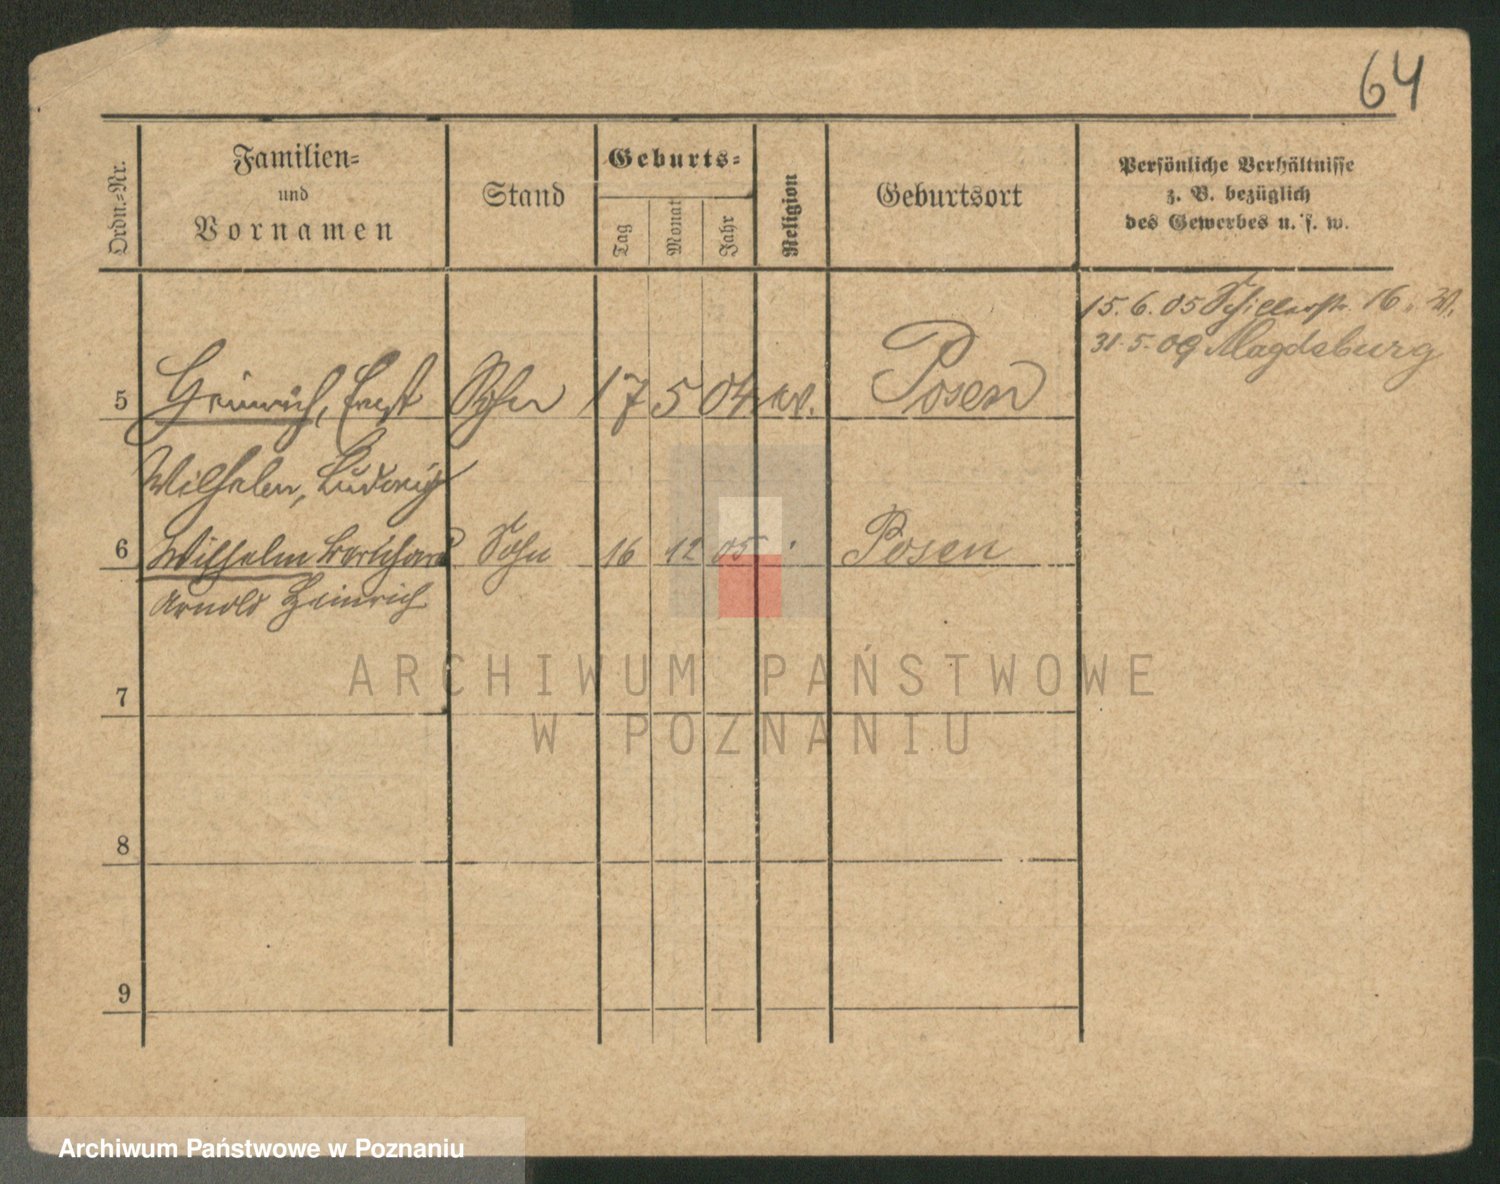 64
Ordn.-Nr.
Familien-
und
Vornamen
Stand
Geburts-
Tag
Monat
Jahr
Religion
Geburtsort
Persönliche Verhältnisse
z. B. bezüglich
des Gewerbes u. s. w.
15.6.05 Schillerstr. 16. W.
31.5.09 Magdeburg
5 Heinrich, Ernst Sohn 17 5 04 ev. Posen
Wilhelm, Ludwig
6 Wilhelm Bernhard Sohn 16 12 05 Posen
Arnold Heinrich
7
8
9
ARCHIWUM PAŃSTWOWE
W POZNANIU
Archiwum Państwowe w Poznaniu